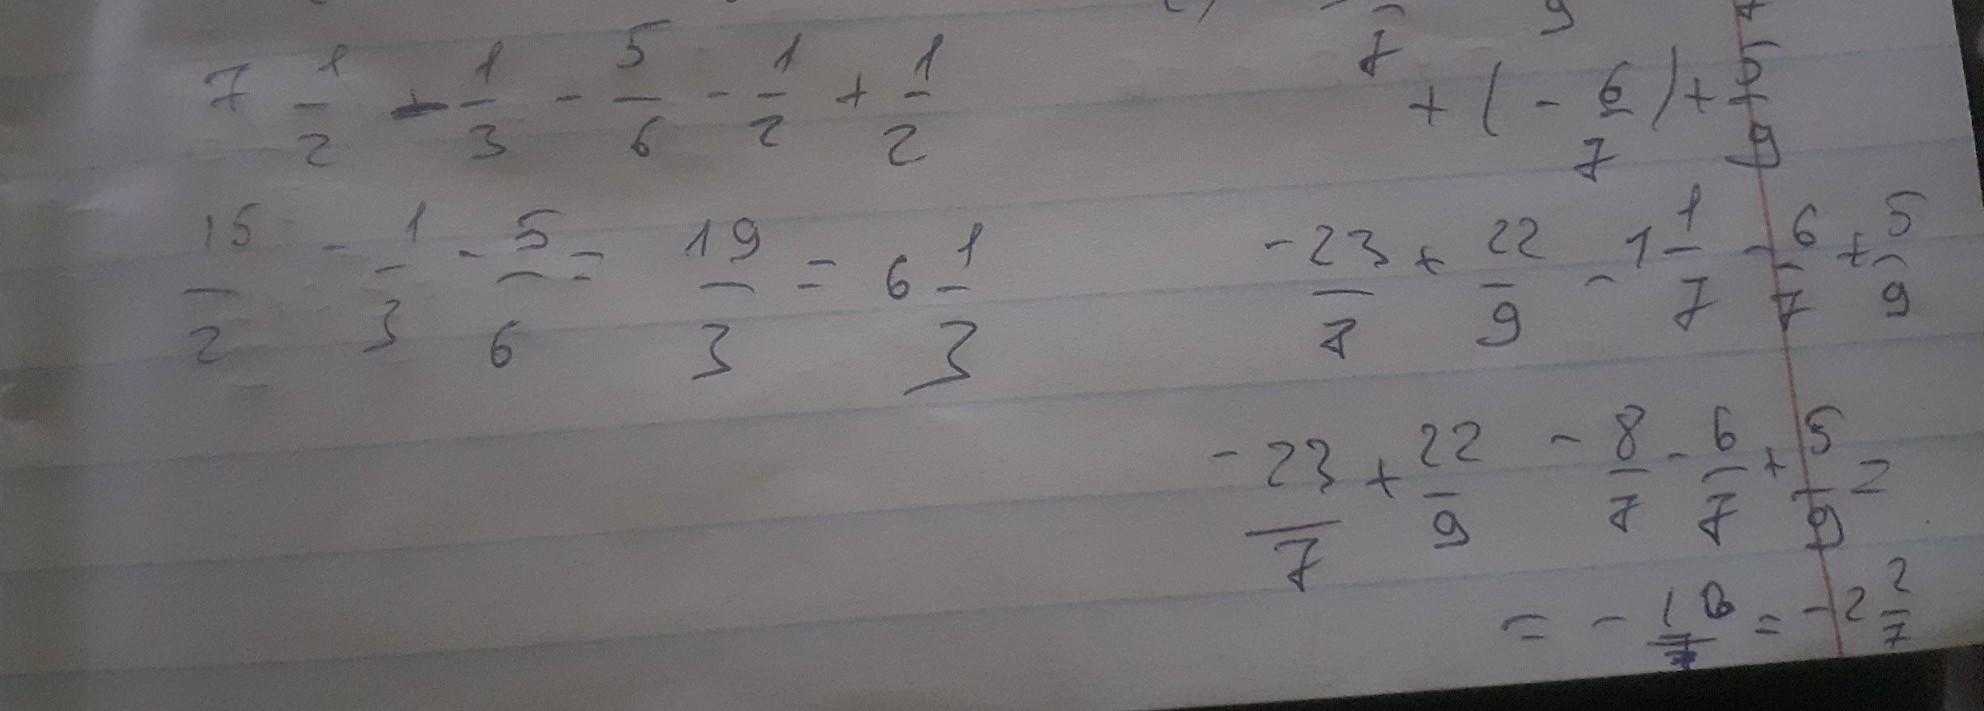 7 1/2 - 1/3 - 5/6 - 1/2 + 1/2
15/2 - 1/3 - 5/6 = 19/3 = 6 1/3
+ ( - 6/7 ) + 5/9
-23/7 + 22/9 - 1 1/7 - 6/7 + 5/9
-23/7 + 22/9 - 8/7 - 6/7 + 5/9 =
= - 16/7 = -2 2/7